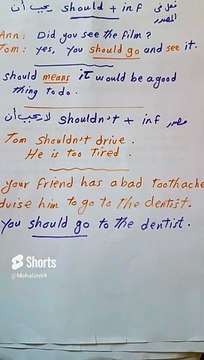 يجب أن should + inf
المصدر
Ann: Did you see the film?
Tom: yes, You should go and see it.
should means it would be a good
thing to do.
لا يجب أن shouldn't + inf مصدر
Tom shouldn't drive.
He is too tired.
your friend has a bad toothache
dvise him to go to the dentist.
You should go to the dentist.
Shorts